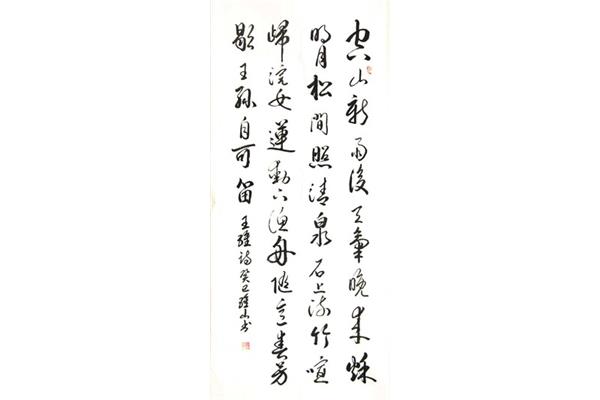 空山新雨後天氣晚来秋
明月松間照清泉石上流竹喧
歸浣女蓮動下漁舟随意春芳
歇王孫自可留 王維詩癸巳山书